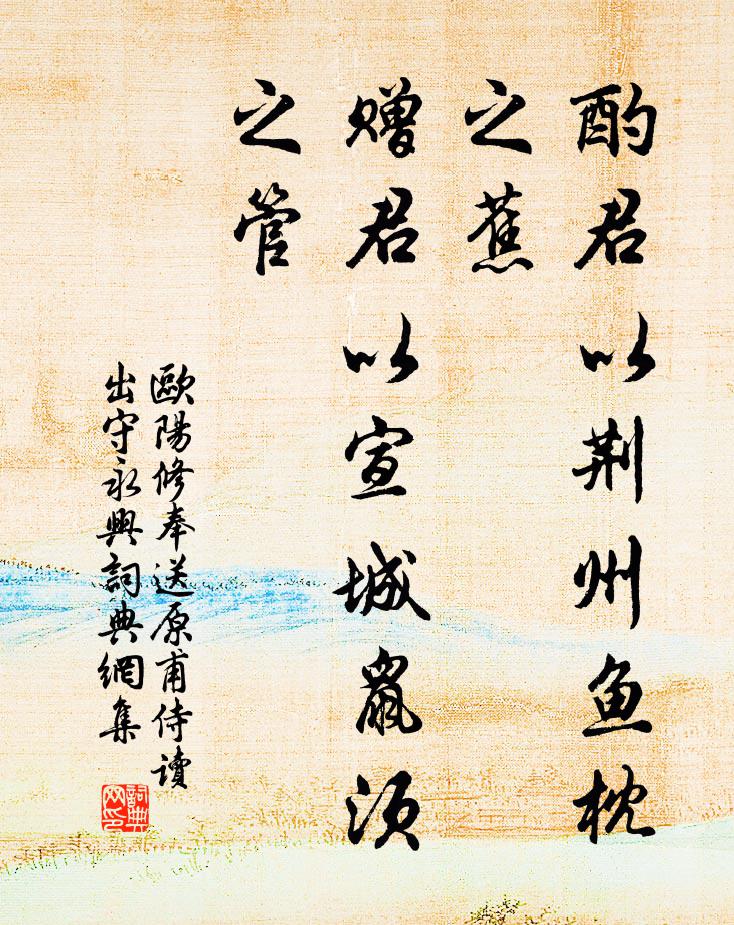 酌君以荆州鱼枕
之蕉
赠君以宣城鼠须
之管
歐陽修奉送原甫侍讀
出守永興詞典網集
詞典
网印